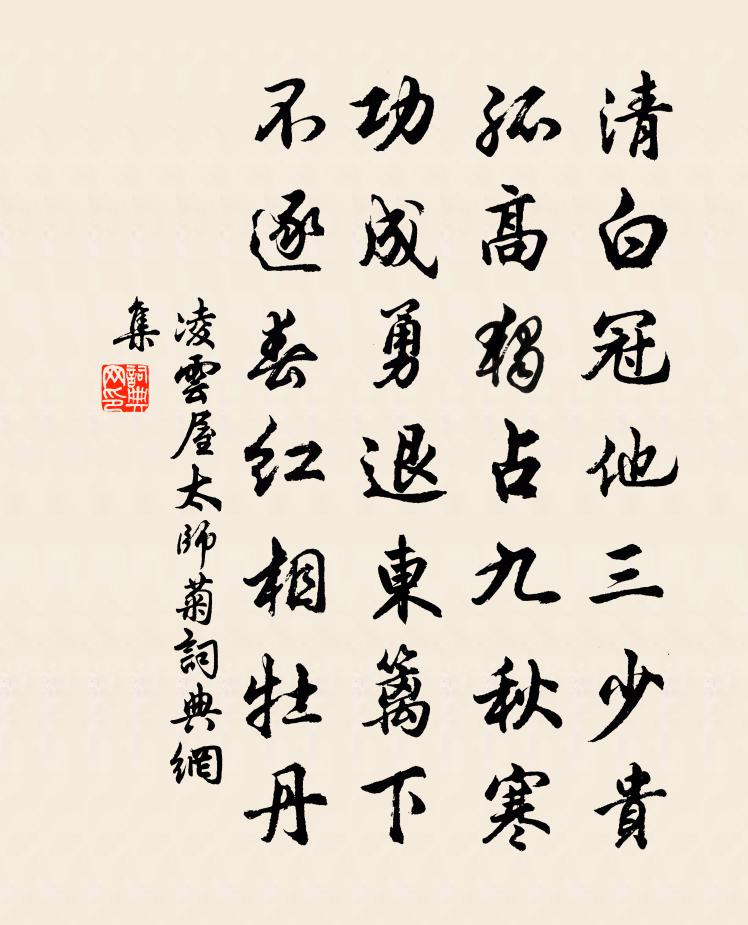 清白冠他三少貴
孤高獨占九秋寒
功成勇退東籬下
不逐春紅相牡丹
凌雲屋太師菊詞典網
集
詞典
网印